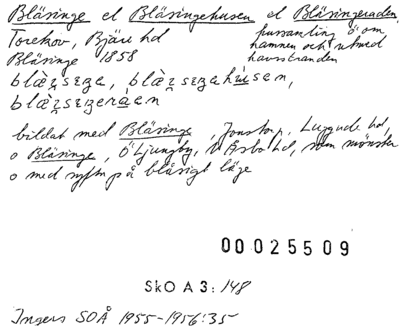 Bläsinge el Bläsingehusen el Bläsingeraden,
Torekov, Bjäre hd
hussamling ö om
hamnen och utmed
havsstranden
Bläsinge 1858
bildat med Bläsinge, Jonstorp, Luggude hd,
o Bläsinge, Ö Ljungby, N Åsbo hd, som mönster
o med syftn på blåsigt läge
00025509
SkO A 3: 148
Ingers SOÅ 1955-1956:35